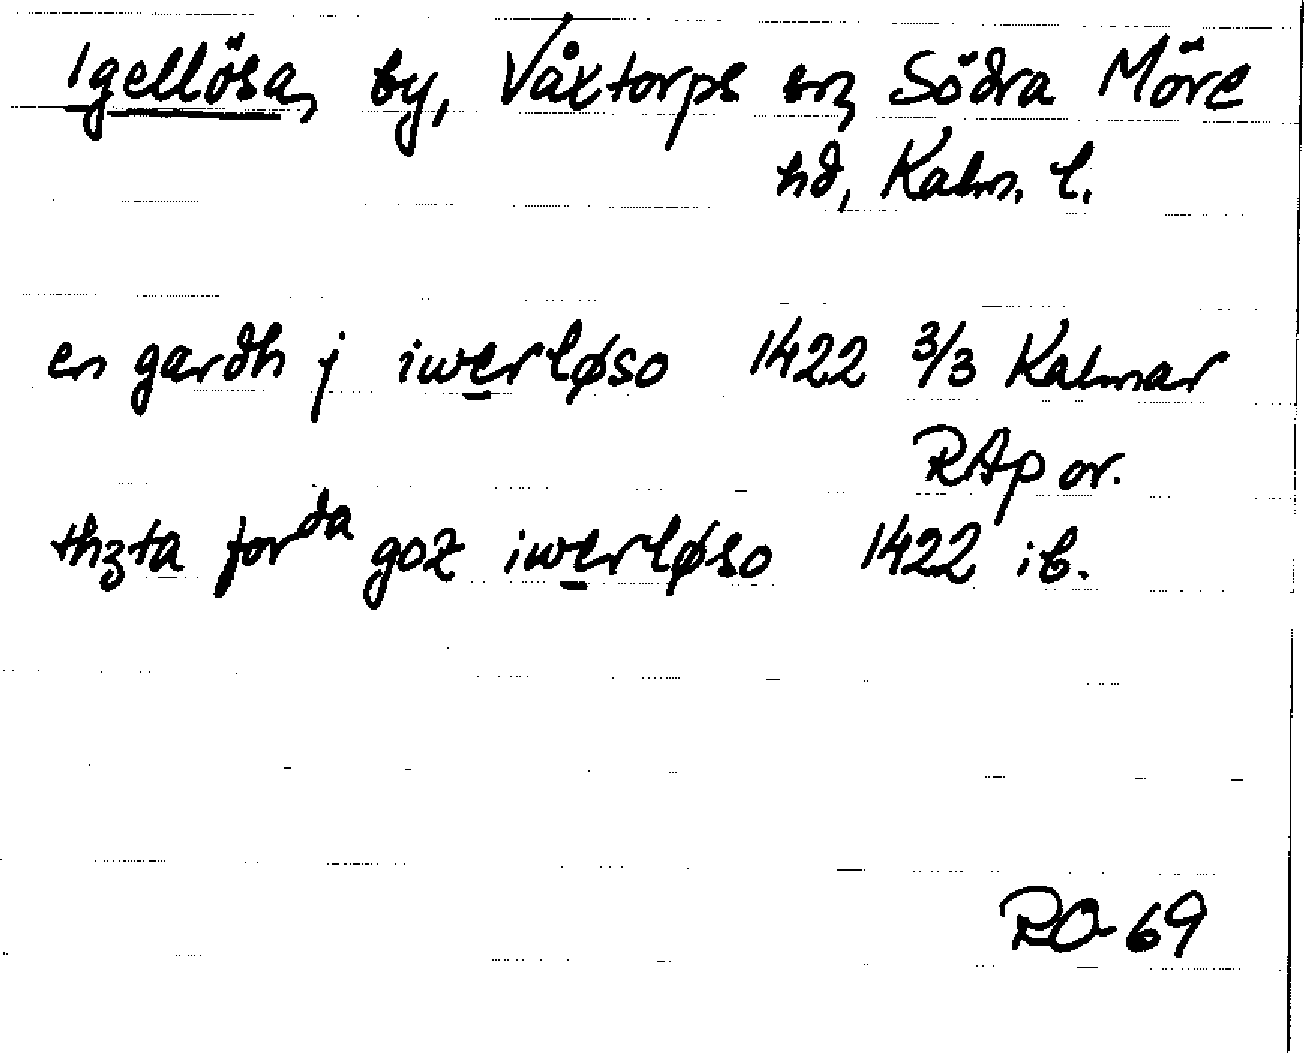 Igellösa, by, Växtorps sn, Södra Möre
hd, Kalm. l.
en gardh j iwerløso 1422 3/3 Kalmar
RAp or.
thꝫta forda goz iwerløso 1422 ib.
RO-69